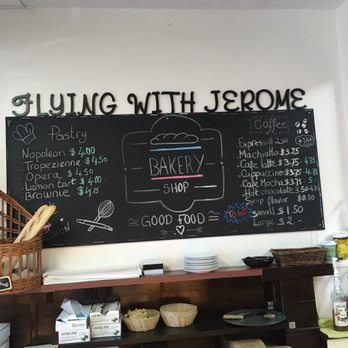 FLYING WITH JEROME
Pastry
Napoleon $4.00
Tropezienne $4.50
Opera $4.50
Lemon tart $4.00
Brownie $4.25
BAKERY
SHOP
GOOD FOOD
TO GO
Coffee
Expresso 2.50
Machiatto $3.25
Cafe latte $3.75 4.75
Cappuccino $3.75
Cafe Mocha $3.75
Hot chocolate $3.50 4.75
syrup flavor 0.50
Small $1.50
Large $2